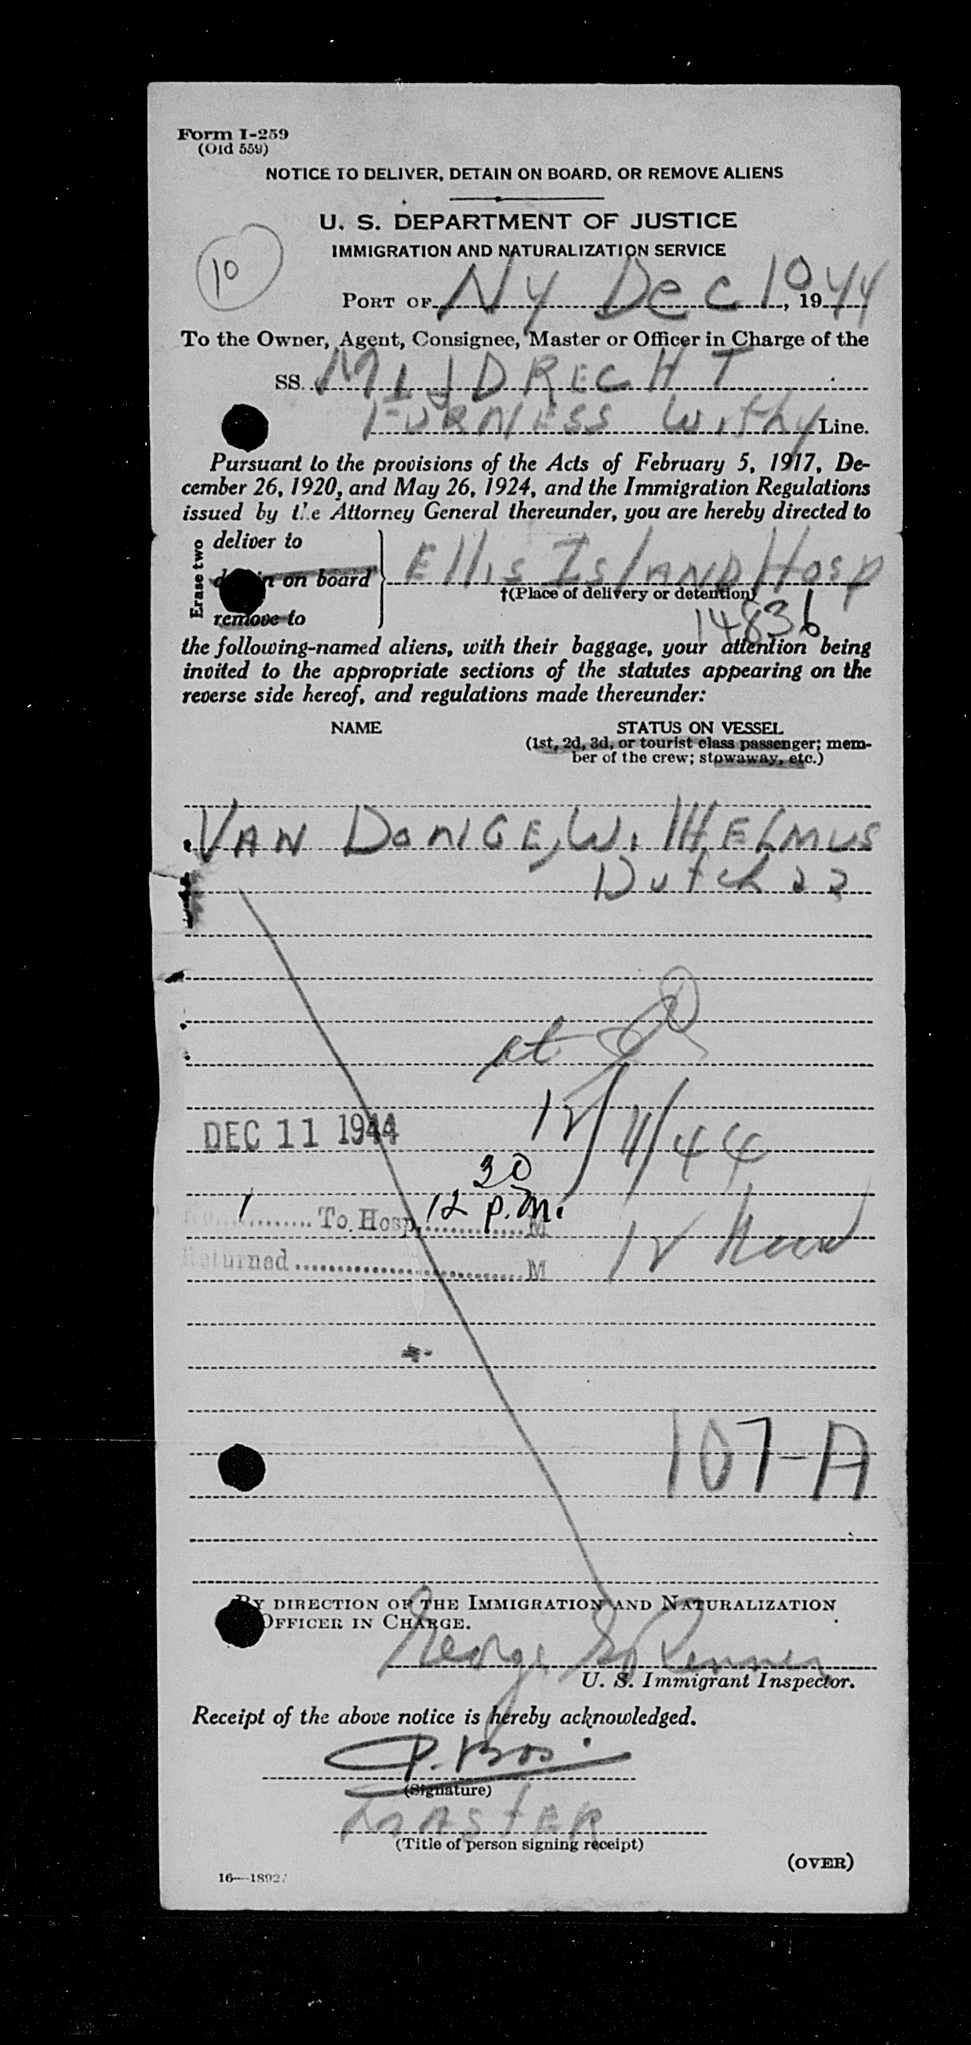 Form I-259
(Old 559)
NOTICE TO DELIVER, DETAIN ON BOARD, OR REMOVE ALIENS
U. S. DEPARTMENT OF JUSTICE
IMMIGRATION AND NATURALIZATION SERVICE
10
PORT OF NY Dec 10, 1944
To the Owner, Agent, Consignee, Master or Officer in Charge of the
SS. MIJDRECHT
FURNESS Withy Line.
Pursuant to the provisions of the Acts of February 5, 1917, De-
cember 26, 1920, and May 26, 1924, and the Immigration Regulations
issued by the Attorney General thereunder, you are hereby directed to
Erase two
deliver to
detain on board
remove to
Ellis Island Hosp
†(Place of delivery or detention)
14836
the following-named aliens, with their baggage, your attention being
invited to the appropriate sections of the statutes appearing on the
reverse side hereof, and regulations made thereunder:
NAME STATUS ON VESSEL
(1st, 2d, 3d, or tourist class passenger; mem-
ber of the crew; stowaway, etc.)
VAN DONGE, WILHELMUS
Dutch 22
12/11/44
DEC 11 1944
No. 1 To Hosp. 12 30 P.M. M
Returned M
12 Noon
107-A
BY DIRECTION OF THE IMMIGRATION AND NATURALIZATION
OFFICER IN CHARGE.
George
U. S. Immigrant Inspector.
Receipt of the above notice is hereby acknowledged.
P. Bos
(Signature)
MASTER
(Title of person signing receipt)
(OVER)
16—18927